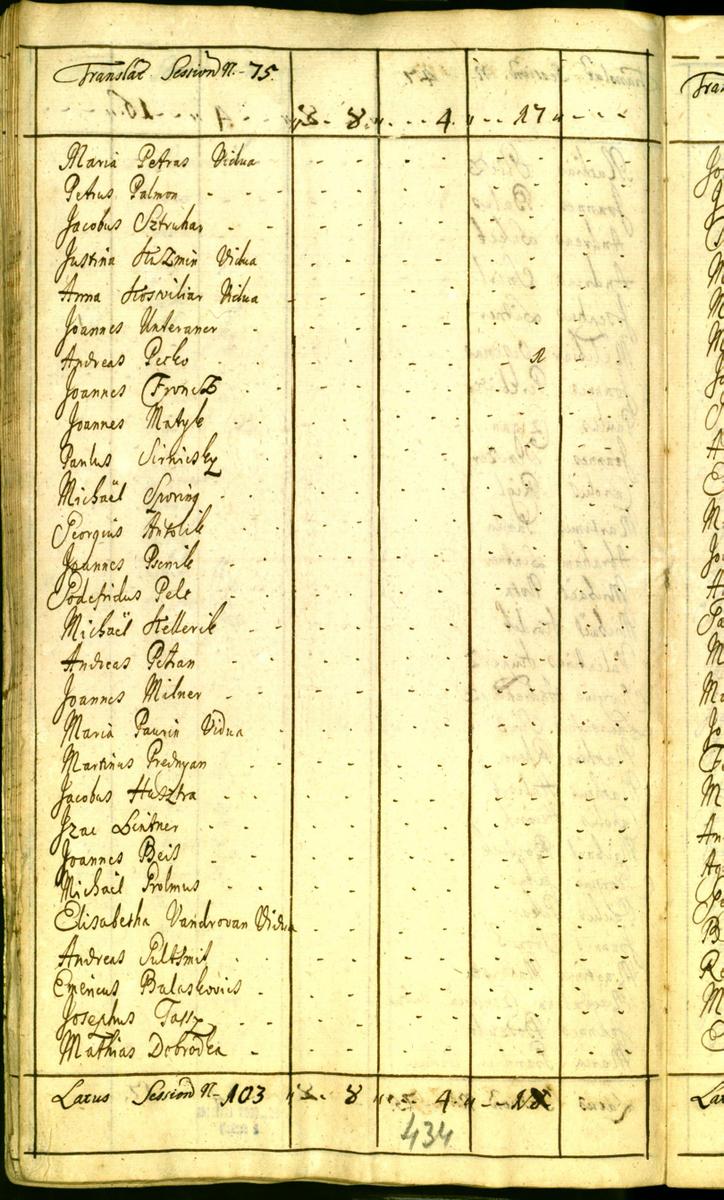 Translat Session N. 75. 8. 4. 17
Maria Petras Vidua
Petrus Palmon
Jacobus Sztruhar
Justina Hazmin Vidua
Anna Kosviliar Vidua
Joannes Unteraner
Andreas Pecko 1
Joannes Froncz
Joannes Matyk
Paulus Sirnicsky
Michaël Sporing
Georgius Antolik
Joannes Psenik
Godefridus Pelt
Michaël Kellerik
Andreas Petran
Joannes Milner
Maria Paurin Vidua
Martinus Prednyan
Jacobus Husztra
Izac Lintner
Joannes Beis
Michaël Prolmus
Elisabetha Vandrovan Vidua
Andreas Pultsmit
Emericus Balaskovics
Josephus
Mathias Dobrodka
Latus Session N. 103 8 4 18
434